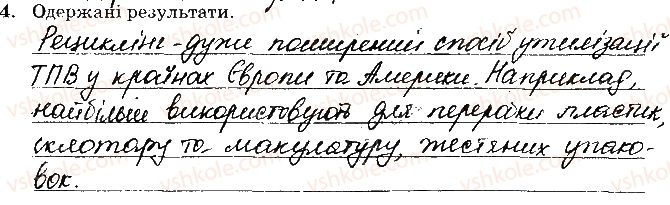 4. Одержані результати.
Рециклінг - дуже поширений спосіб утилізації
ТПВ у країнах Європи та Америки. Наприклад,
найбільш використовують для переробки пластик,
склотару та макулатуру, жестяних упако-
вок.